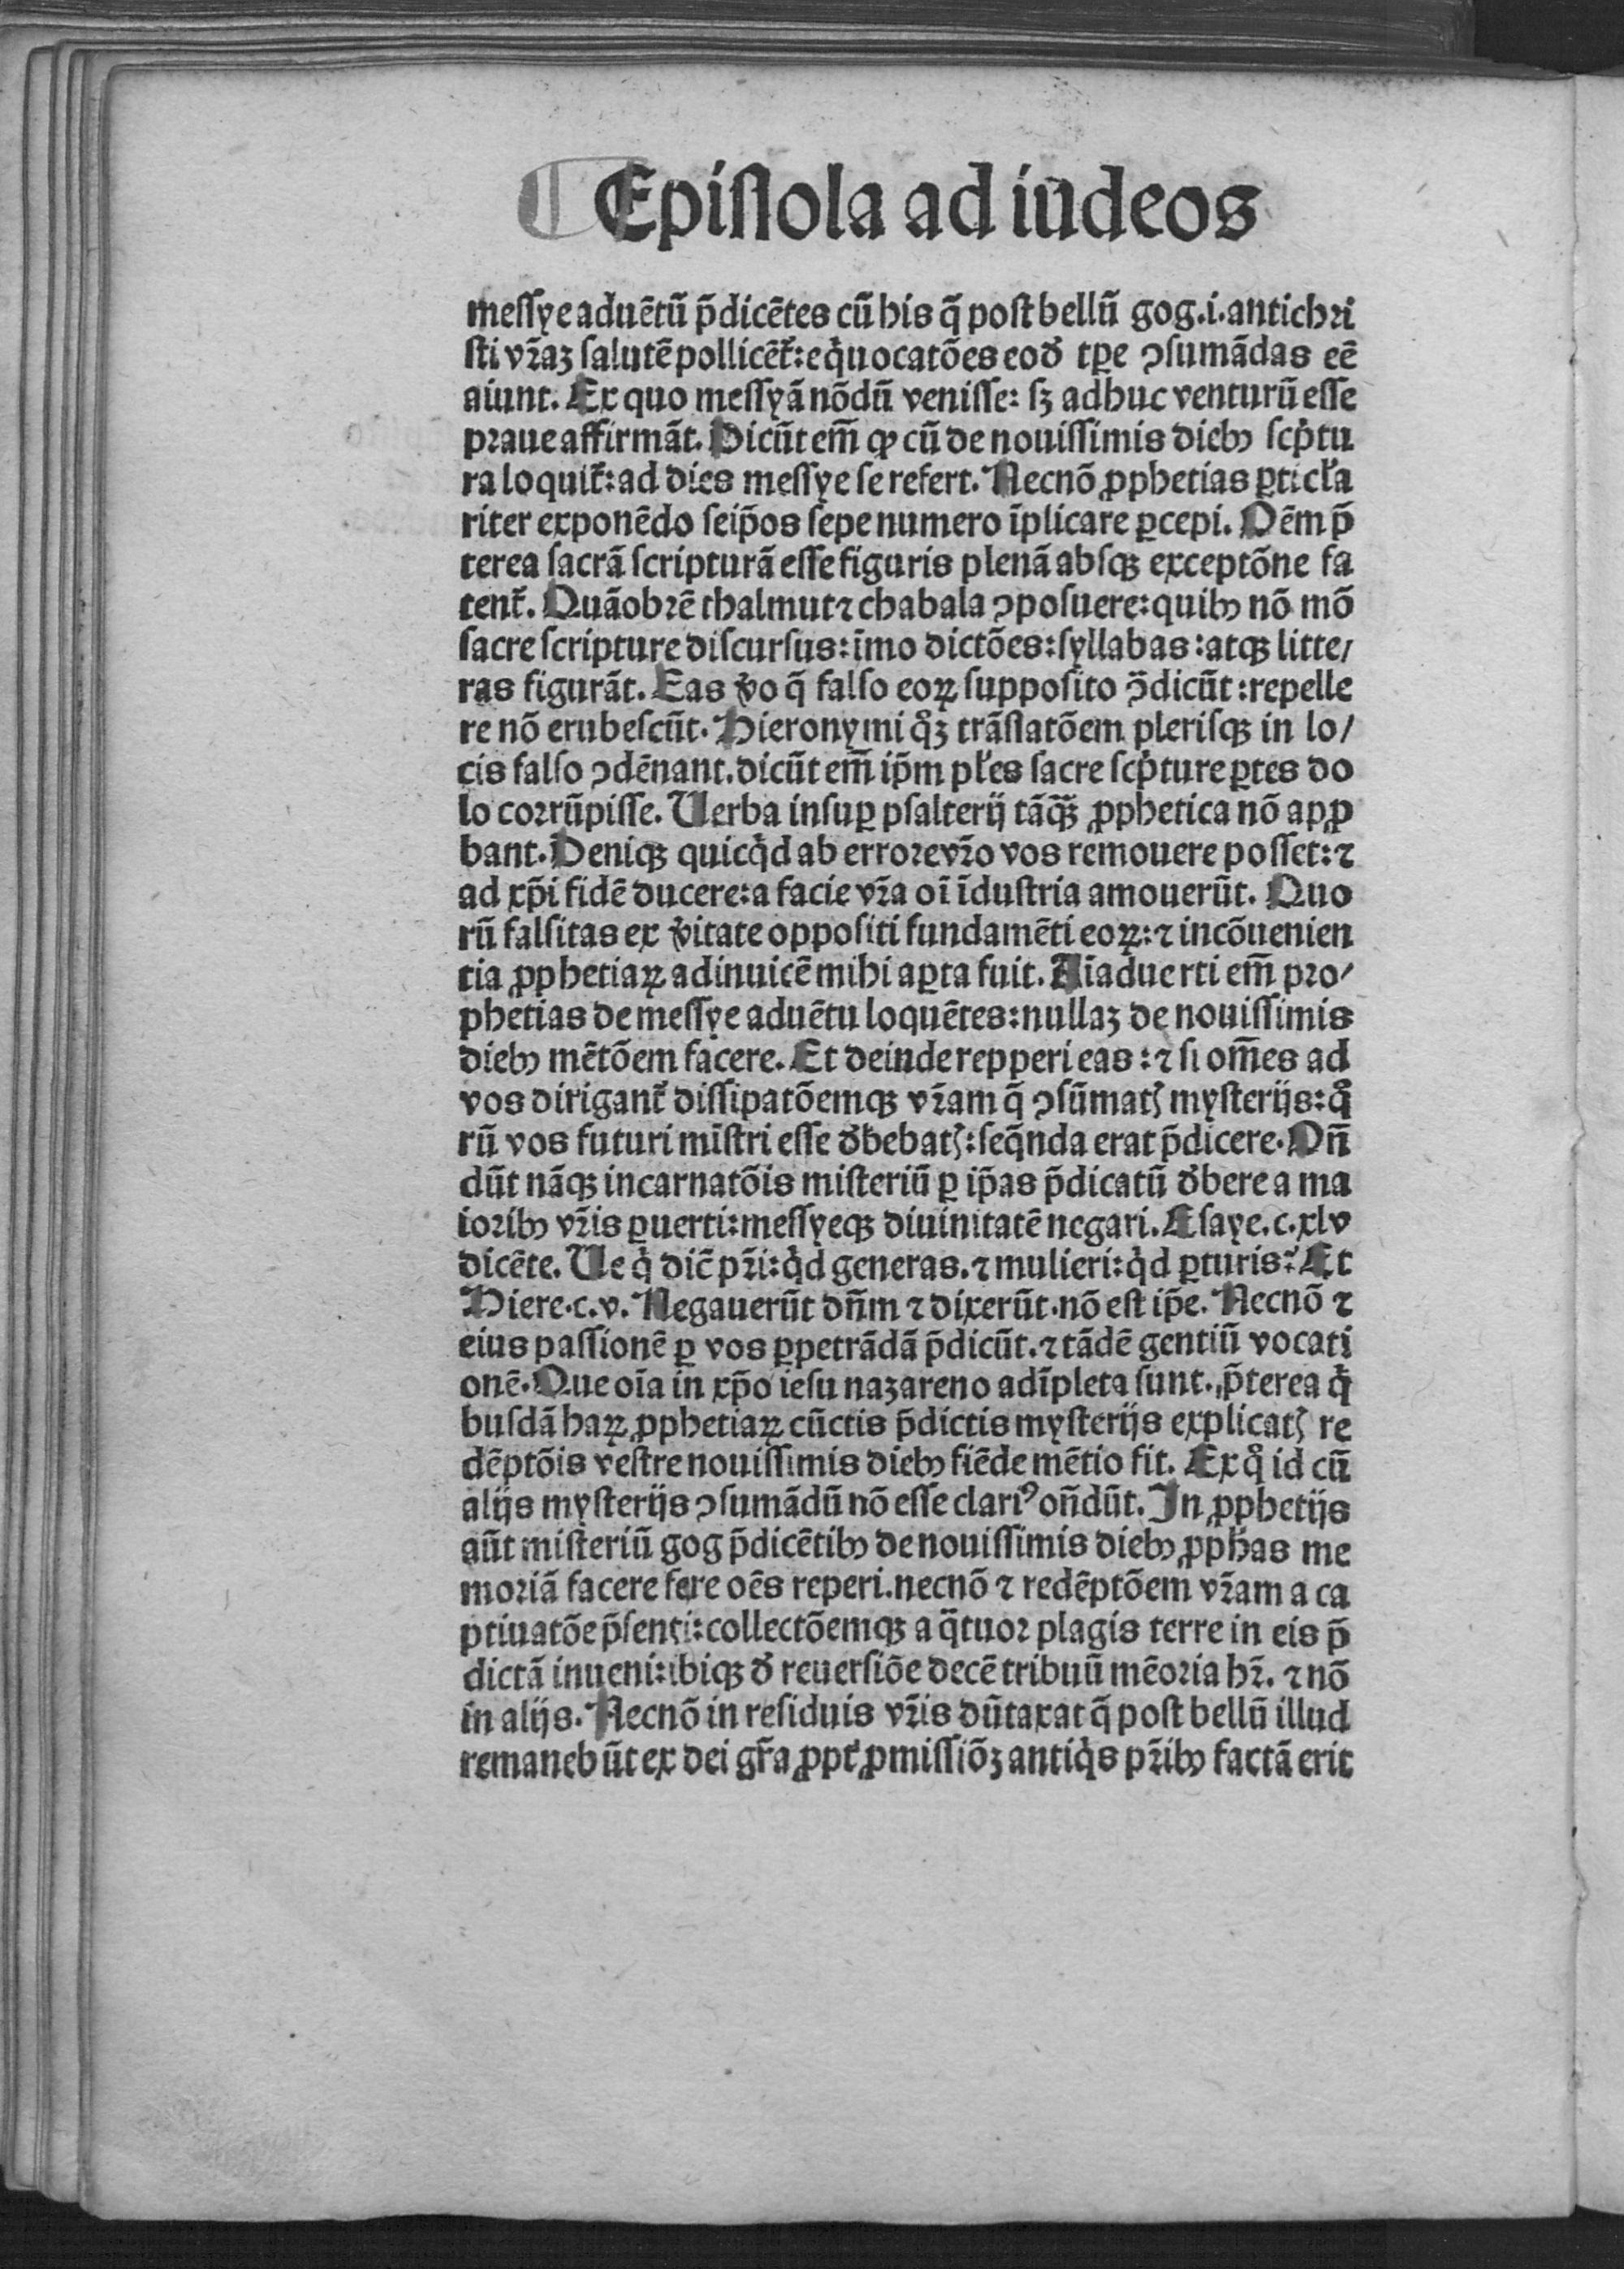 Epistola ad iudeos
messye aduētū p̄dicētes cū his q̄ post bellū gog.i.antichri
sti vr̄aꝫ salutē pollicēt᷑: eq̇uocatōes eoꝺ̛ tꝑe ꝯsumādas eē
aiunt. Ex quo messyā nōdū venisse: sꝫ adhuc venturū esse
praue affirmāt. Dicūt em̄ ꝙ cū de nouissimis dieb⁹ scṗtu
ra loquit᷑: ad dies messye se refert. Necnō ꝓphetias ꝑticl̛a
riter exponēdo seip̄os sepe numero īplicare ꝑcepi. Dēm p̄
terea sacrā scripturā esse figuris plenā absqꝫ exceptōne fa
tent᷑. Quāobrē thalmut ⁊ chabala ꝯposuere: quib⁹ nō mō
sacre scripture discursus: īmo dictōes: syllabas: atqꝫ litte/
ras figurāt. Eas v̛o q̄ falso eoꝝ supposito ꝯ̄dicūt: repelle
re nō erubescūt. Hieronymi qͦꝫ trāslatōem plerisqꝫ in lo/
cis falso ꝯdēnant. dicūt em̄ ip̄m pl̛es sacre scṗture ꝑtes do
lo corrūpisse. Uerba insuꝑ psalterij tāq̄ꝫ ꝓphetica nō apꝓ
bant. Deniqꝫ quicq̇d ab errore vr̄o vos remouere posset: ⁊
ad xp̄i fidē ducere: a facie vr̄a oī īdustria amouerūt. Quo
rū falsitas ex v̛itate oppositi fundamēti eoꝝ: ⁊ incōuenien
tia ꝓphetiaꝝ adinuicē mihi aꝑta fuit. Aīaduerti em̄ pro/
phetias de messye aduētu loquētes: nullaꝫ de nouissimis
dieb⁹ mētōem facere. Et deinde repperi eas: ⁊ si om̄es ad
vos dirigant᷑ dissipatōemqꝫ vr̄am q̄ ꝯsūmatꝭ mysterijs: qͦ
rū vos futuri mīstri esse ꝺ̛bebatꝭ: seq̄nda erat p̄dicere. On̄
dūt nāqꝫ incarnatōis misteriū ꝑ ip̄as p̄dicatū ꝺ̛bere a ma
iorib⁹ vr̄is ꝑuerti: messyeqꝫ diuinitatē negari. Esaye.c.xlv
dicēte. Ue q̇ dic̄ pr̄i: q̇d generas. ⁊ mulieri: q̇d ꝑturis? Et
Hiere.c.v. Negauerūt dn̄m ⁊ dixerūt. nō est ip̄e. Necnō ⁊
eius passionē ꝑ vos ꝑpetrādā p̄dicūt. ⁊ tādē gentiū vocati
onē. Que oīa in xp̄o iesu nazareno adīpleta sunt. p̄terea q̇
busdā haꝝ ꝓphetiaꝝ cūctis p̄dictis mysterijs explicatꝭ re
dēptōis vestre nouissimis dieb⁹ fiēde mētio fit. Ex qͦ id cū
alijs mysterijs ꝯsumādū nō esse clari⁹ on̄dūt. In ꝓphetijs
aūt misteriū gog p̄dicētib⁹ de nouissimis dieb⁹ ꝓph̄as me
moriā facere fere oēs reperi. necnō ⁊ redēptōem vr̄am a ca
ptiuatōe p̄senti: collectōemqꝫ a q̄tuor plagis terre in eis p̄
dictā inueni: ibiqꝫ ꝺ̛ reuersiōe decē tribuū mēoria hr̄. ⁊ nō
in alijs. Necnō in residuis vr̄is dūtaxat q̄ post bellū illud
remanebūt ex dei gr̄a ꝓpt̛ ꝓmissiōꝫ antiq̇s pr̄ib⁹ factā erit